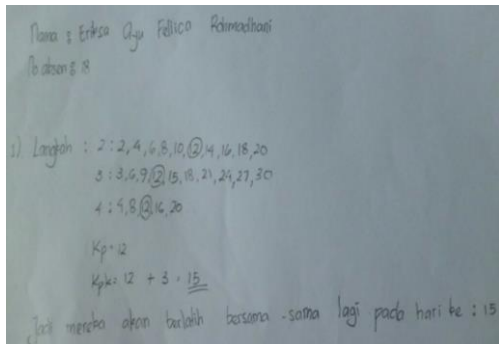 Nama : Eriksa Ayu Fellica Rahmadhani
No absen : 18
1) Langkah : 2 : 2, 4, 6, 8, 10, 12, 14, 16, 18, 20
3 : 3, 6, 9, 12, 15, 18, 21, 24, 27, 30
4 : 4, 8, 12, 16, 20
Kp = 12
Kpk = 12 + 3 = 15
Jadi mereka akan berlatih bersama-sama lagi pada hari ke : 15